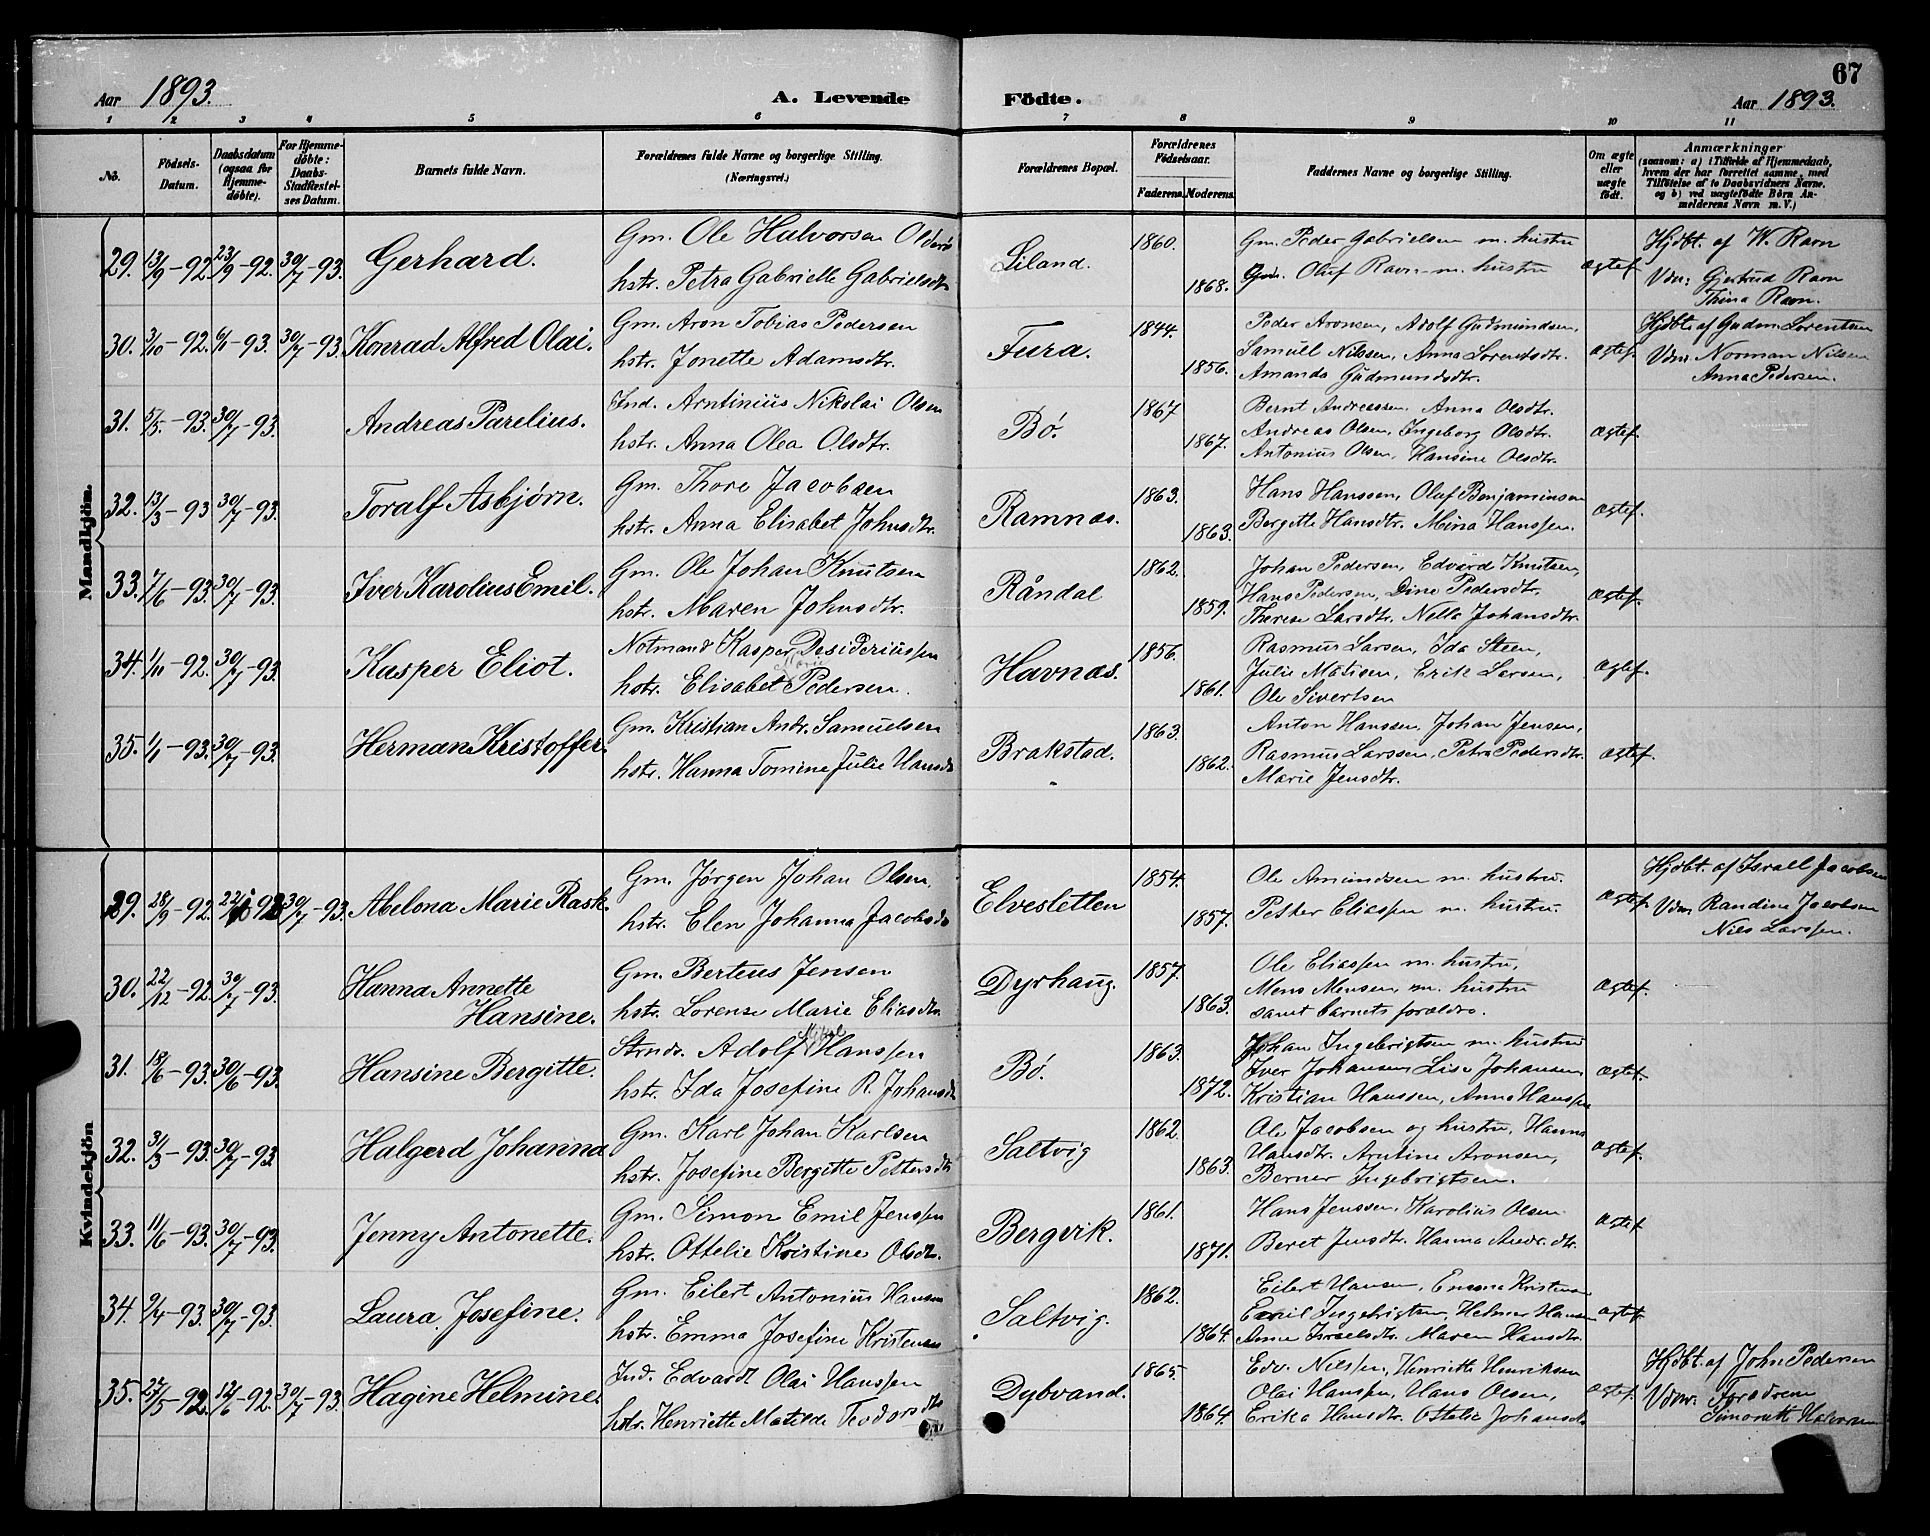 67
Aar 1893. A. Levende Födte. Aar 1893.
1 2 3 4 5 6 7 8 9 10 11
No.
Födsels-Datum.
Daabsdatum (ogsaa for Hjemme-døbte).
For Hjemme-døbte: Daabs-Stadfæstel-ses Datum.
Barnets fulde Navn.
Forældrenes fulde Navne og borgerlige Stilling. (Næringsvei.)
Forældrenes Bopæl.
Forældrenes Födselsaar.
Faderens. Moderens.
Faddernes Navne og borgerlige Stilling.
Om ægte eller uægte født.
Anmærkninger (saasom: a) i Tilfælde af Hjemmedaab, hvem der har forrettet samme, med Tilföielse af to Daabsvidners Navne, og b) ved uægtefödte Börn An-melderens Navn m. V.)
Mandkjön.
29. 13/9-92. 23/9-92. 30/7-93. Gerhard. Gm. Ole Halvorsen
hstr. Petra Gabrielle Gabrielsdtr
Liland. 1860. 1868.
Gm. Peder Gabrielsen m. hustru
Gm. Oluf Ravn m. hustru
Ægtef.
Hjdbt. af W. Ravn
Vdnr: Gjertrud Ravn
Thina Ravn.
30. 3/10-92. 6/1-93. 30/7-93. Konrad Alfred Olai. Gm. Aron Tobias Pedersen
hstr. Jonette Adamsdtr.
Fura. 1844. 1856.
Peder Aronsen, Adolf Gudmundsen,
Samuel Nilssen, Anna Lorentsdtr.
Amanda Gudmundsdtr.
Ægtef.
Hjdbt. af Gudm. Lorentsen
Vdnr. Norman Nilsen
Anna Pedersen.
31. 5/5-93. 30/7-93. Andreas Parelius. Ind. Arntinius Nikolai Olsen
hstr. Anna Olea Olsdtr.
Bø. 1867 1867.
Bernt Andreassen. Anna Olsdtr.
Andreas Olsen, Ingeborg Olsdtr.
Antonius Olsen, Hansine Olsdtr.
Ægtef.
32. 13/3-93 30/7-93. Toralf Asbjørn. Gm. Thore Jacobsen
hstr. Anna Elisabet Johnsdtr.
Ramnas. 1863. 1863.
Hans Hanssen, Oluf Benjaminsen
Bergette Hansdtr. Mina Hanssen.
Ægtef.
33. 7/6-93. 30/7-93. Iver Karolius Emil. Gm. Ole Johan Knutsen
hstr. Maren Johnsdtr.
Råndal 1862. 1859.
Johan Pedersen, Edvard Knutsen,
Hans Pedersen, Dine Pedersdtr.
Therese Larsdtr. Nella Johansdtr.
Ægtef.
34. 1/10-92. 30/7-93. Kasper Eliot. Notmand Kasper Desideriussen
Marie
hstr. Elisabet Pedersen.
Havnas. 1856. 1861.
Rasmus Larsen, Ida Steen,
Julie Matisen, Erik Larsen,
Ole Sivertsen
Ægtef.
35. 1/1-93. 30/7-93. Herman Kristoffer. Gm. Kristian Andr. Samuelsen
hstr. Hanna Tomine Julie Hansdtr
Brakstad. 1863. 1862.
Anton Hanssen, Johan Jensen,
Rasmus Larssen, Petra Pedersdtr.
Marie Jensdtr.
Ægtef.
Kvindekjön
29. 28/9-92. 30/7-93. Abelona Marie Rask. Gm. Jørgen Johan Olsen,
hstr. Elen Johanna Jacobsdtr
Elvesletten 1854. 1857.
Ole Amundsen m. hustru.
Petter Eliassen m. hustru.
Ægtef.
Hjdbt. af Israel Jacobsen
Vdnr Randine Jacobsen
Nils Larssen.
30. 22/12-92. 30/7-93. Hanna Annette
Hansine. Gm. Berteus Jensen
hstr. Lorense Marie Eliasdtr.
Dyrhaug. 1857. 1863.
Ole Eliassen m. hustru,
Mons Monsen, m. hustru
samt barnets forældre.
Ægtef.
31. 18/6-93. 30/6-93. Hansine Bergitte. Strnds. Adolf Hanssen
hstr. Ida Josefine R. Johansdtr
Bø. 1863. 1872.
Johan Ingebrigtsen m. hustru
Iver Johansen Lise Johansen,
Kristian Hanssen, Anna Hanssen
Ægtef.
32. 31/3-93. 30/7-93 Halgerd Johanna Gm. Karl Johan Karlsen
hstr. Josefine Bergette Pettersdtr
Saltvig 1862. 1863.
Ole Jacobsen og hustru, Hanna
Hansdtr. Arntine Aronsen,
Berner Ingebrigtsen.
Ægtef.
33. 11/6-93. 30/7-93. Jenny Antonette. Gm. Simon Emil Jenssen
hstr. Ottelie Kristine Olsdtr.
Bergvik. 1861. 1871.
Hans Jenssen, Karolius Olsen
Beret Jensdtr. Hanna Andr.dtr.
Ægtef
34. 9/4-93. 30/7-93. Laura Josefine. Gm. Eilert Antonius Hansen
hstr. Emma Josefine Kristensen
Saltvig. 1862. 1864.
Eilert Hansen, Emma Kristensen
Emil Ingebrigtsen, Helmer Hansen
Anna Israelsdtr. Maren Hansdtr.
Ægtef.
35. 27/5-92. 12/6-92. 30/7-93. Hagine Helmine. Ind. Edvardt Olai Hanssen
hstr. Henriette Matilde Teodorsdtr
Dybvand. 1865. 1864.
Edv. Nilssen, Henriette Henriksen
Olai Hanssen, Hans Olsen,
Erika Hansdtr. Ottelie Johansdtr
Ægtef.
Hjdbt. af John Pedersen
Vdnr.